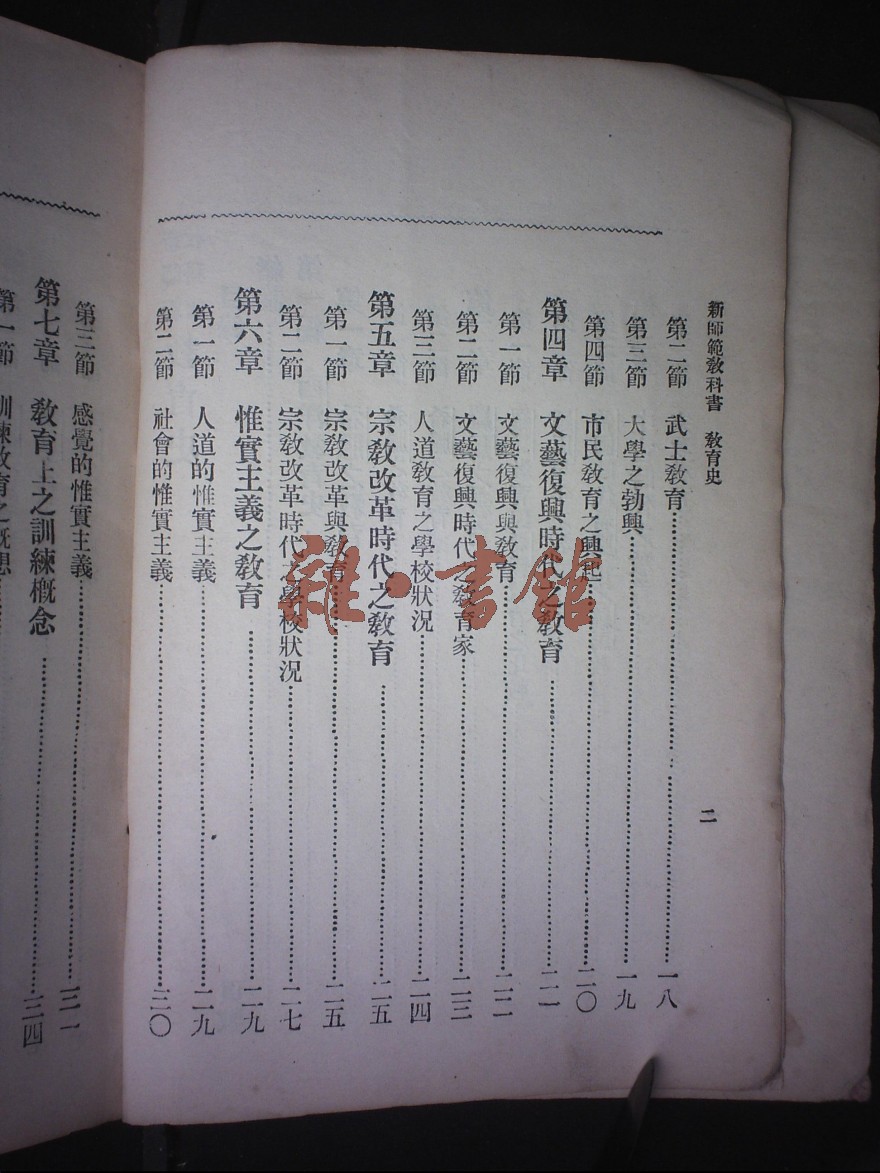 新師範敎科書　敎育史
二
第二節　武士敎育……一八
第三節　大學之勃興……一九
第四節　市民敎育之興起……二〇
第四章　文藝復興時代之敎育……二一
第一節　文藝復興與敎育……二二
第二節　文藝復興時代之敎育家……二三
第三節　人道敎育之學校狀况……二四
第五章　宗敎改革時代之敎育……二五
第一節　宗敎改革與敎育……二五
第二節　宗敎改革時代之學校狀况……二七
第六章　惟實主義之敎育……二九
第一節　人道的惟實主義……二九
第二節　社會的惟實主義……三〇
第三節　感覺的惟實主義……三一
第七章　敎育上之訓練概念……三四
第一節　訓練敎育之概想
雜·書館